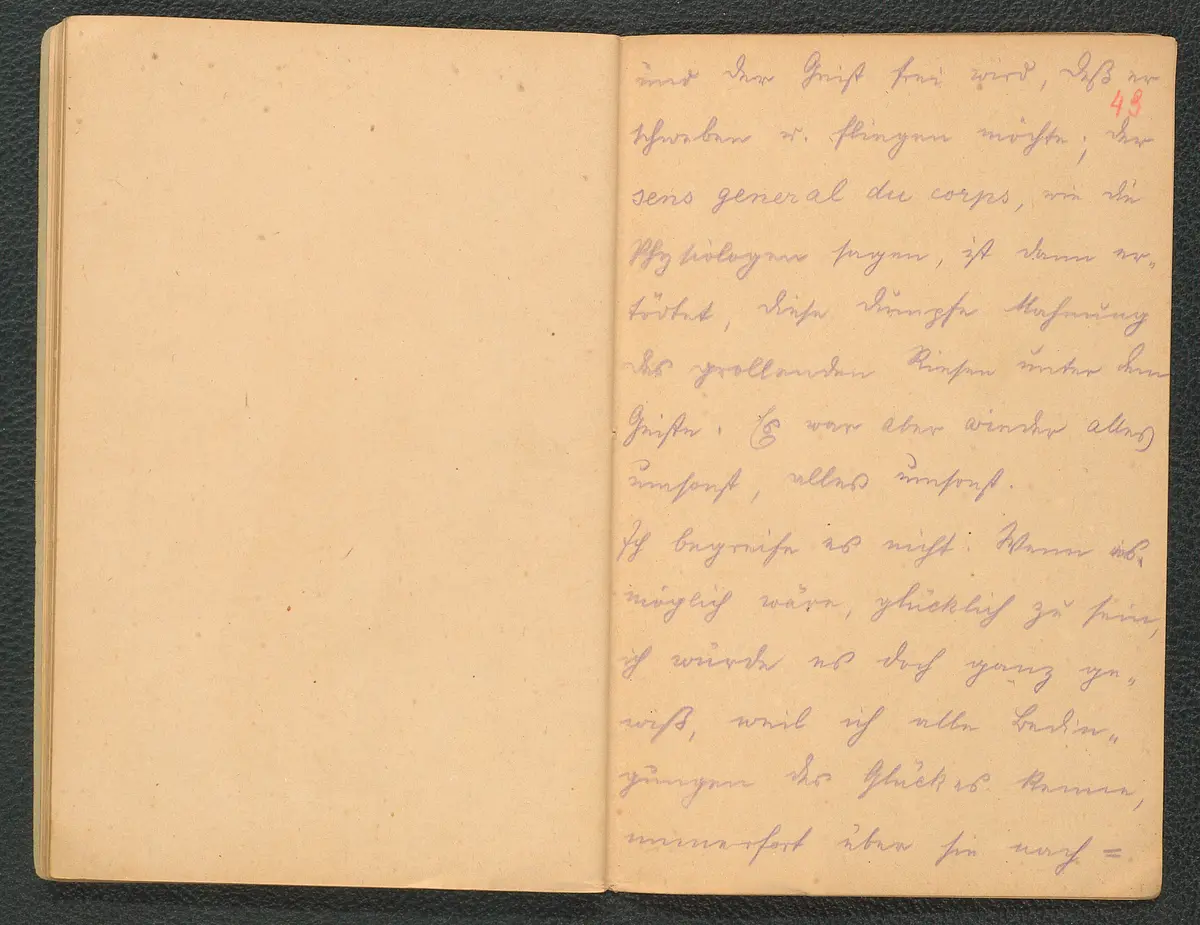 und der Geist frei wird, daß er
43
schweben u. fliegen möchte; der
sens general du corps, wie die
Physiologen sagen, ist dann er-
tötet, diese dumpfe Mahnung
des grollenden Riesen unter dem
Geiste. Es war aber wieder alles
umsonst, alles umsonst.
Ich begreife es nicht. Wenn es
möglich wäre, glücklich zu sein,
ich würde es doch ganz ge-
wiß, weil ich alle Bedin-
gungen des Glückes kenne,
immerfort über sie nach=